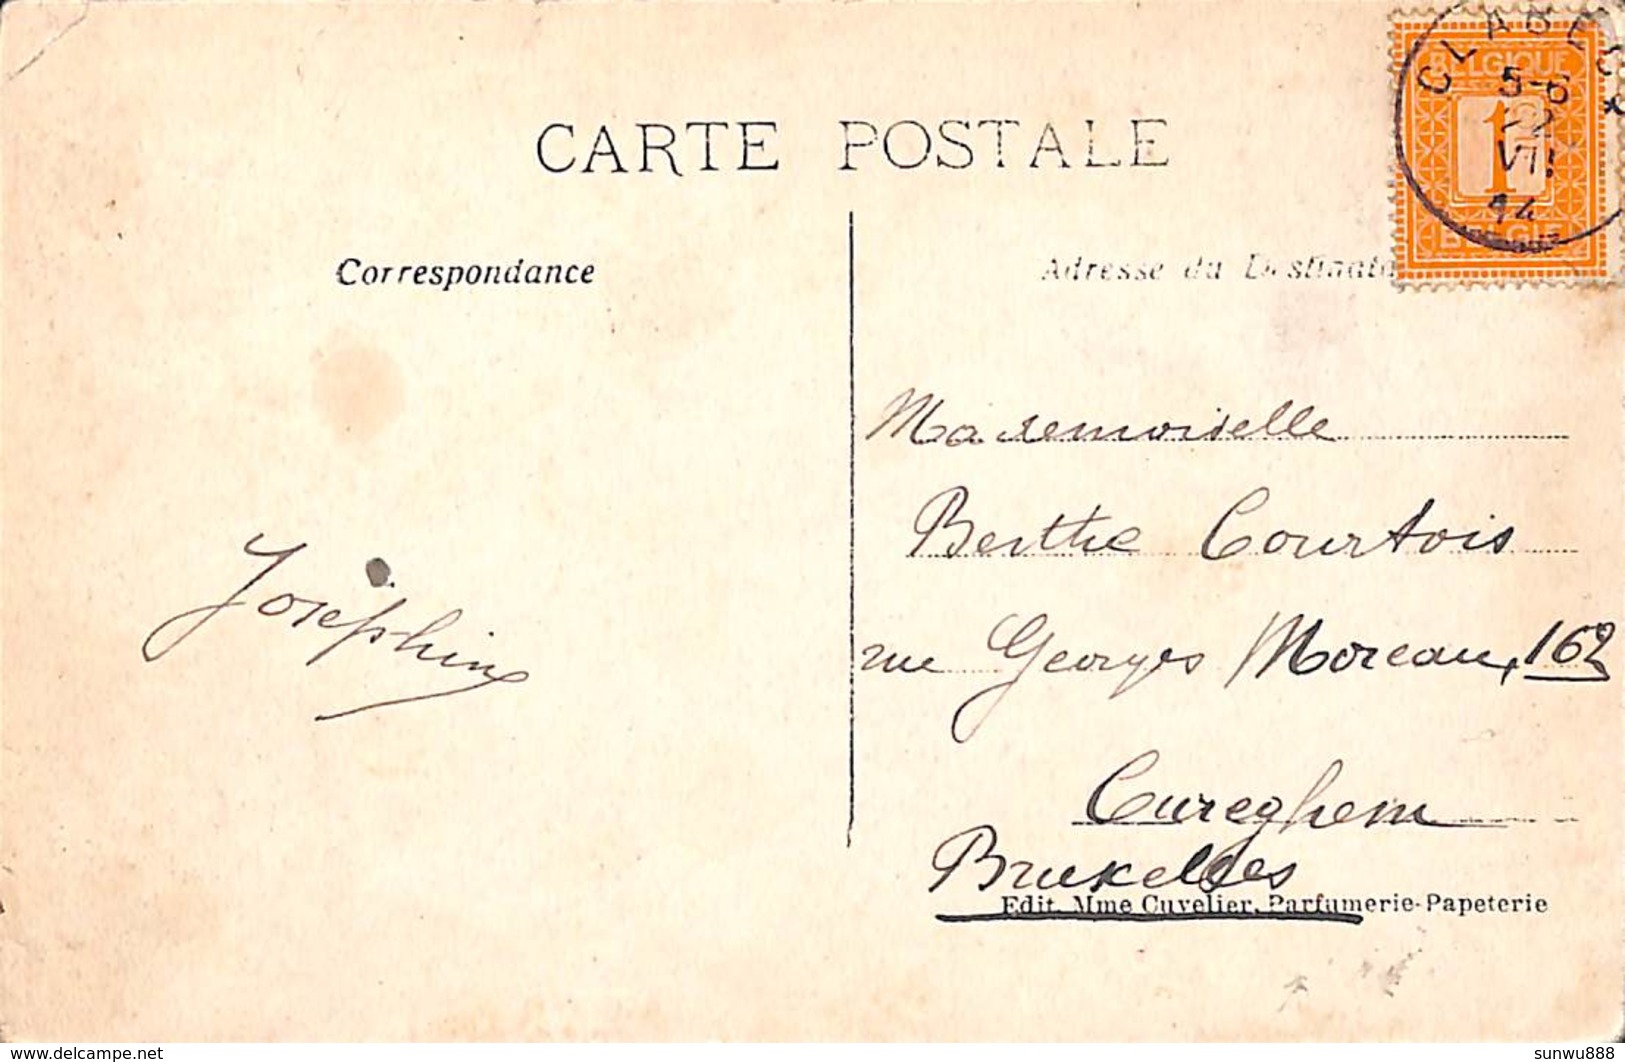 CARTE POSTALE
Correspondance
Adresse du Destinata
BELGIQUE
1
BELGIË
CLABECK
5-6
VII
14
Mademoiselle
Berthe Courtois
rue Georges Moreau, 162
Cureghem
Bruxelles
Joséphine
Edit. Mme Cuvelier, Parfumerie-Papeterie
www.delcampe.net
sunwu888